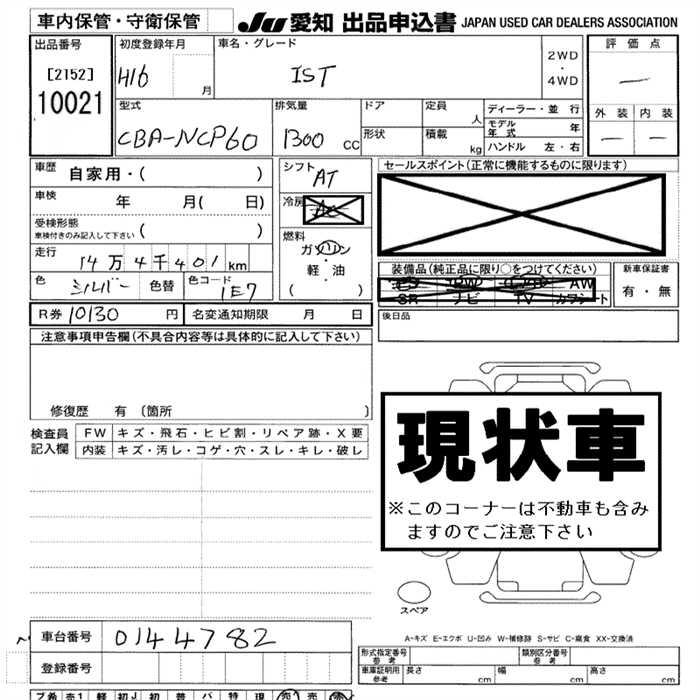 車内保管・守衛保管 JU 愛知 出品申込書 JAPAN USED CAR DEALERS ASSOCIATION
出品番号 初度登録年月 車名・グレード 評価点
[2152] H16 月 IST 2WD・4WD —
10021 外装 内装
型式 排気量 ドア 定員 人 ディーラー・並行
CBA-NCP60 1300 CC 形状 積載 kg モデル年式 年
ハンドル 左・右 — —
車歴 自家用・( ) シフト AT セールスポイント(正常に機能するものに限ります)
車検 年 月( 日) 冷房 AC
受検形態 ( )
車検付きのみ記入して下さい
燃料 ガソリン・軽・油 ( )
走行 14万4千401km
装備品(純正品に限り○をつけてください) 新車保証書
色 シルバー 色替 色コード 1E7
PW AW 有・無
SR ナビ TV カワシート
R券 10130 円 名変通知期限 月 日 後日品
注意事項申告欄(不具合内容等は具体的に記入して下さい)
修復歴 有 〔箇所 〕
現状車
※このコーナーは不動車も含み
ますのでご注意下さい
検査員記入欄 FW キズ・飛石・ヒビ割・リペア跡・X要
内装 キズ・汚レ・コゲ・穴・スレ・キレ・破レ
スペア
A-キズ E-エクボ U-凹み W-補修跡 S-サビ C-腐食 XX-交換済
車台番号 0144782
登録番号
形式指定番号 参考 類別区分番号 参考
車庫証明用 参考 長さ cm 幅 cm 高さ cm